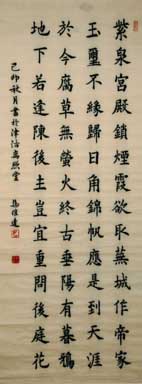 紫泉宮殿鎖煙霞欲取蕪城作帝家
玉璽不緣歸日角錦帆應是到天涯
於今腐草無螢火終古垂陽有暮鴉
地下若逢陳後主豈宜重問後庭花
己卯秋月書於津沽堂